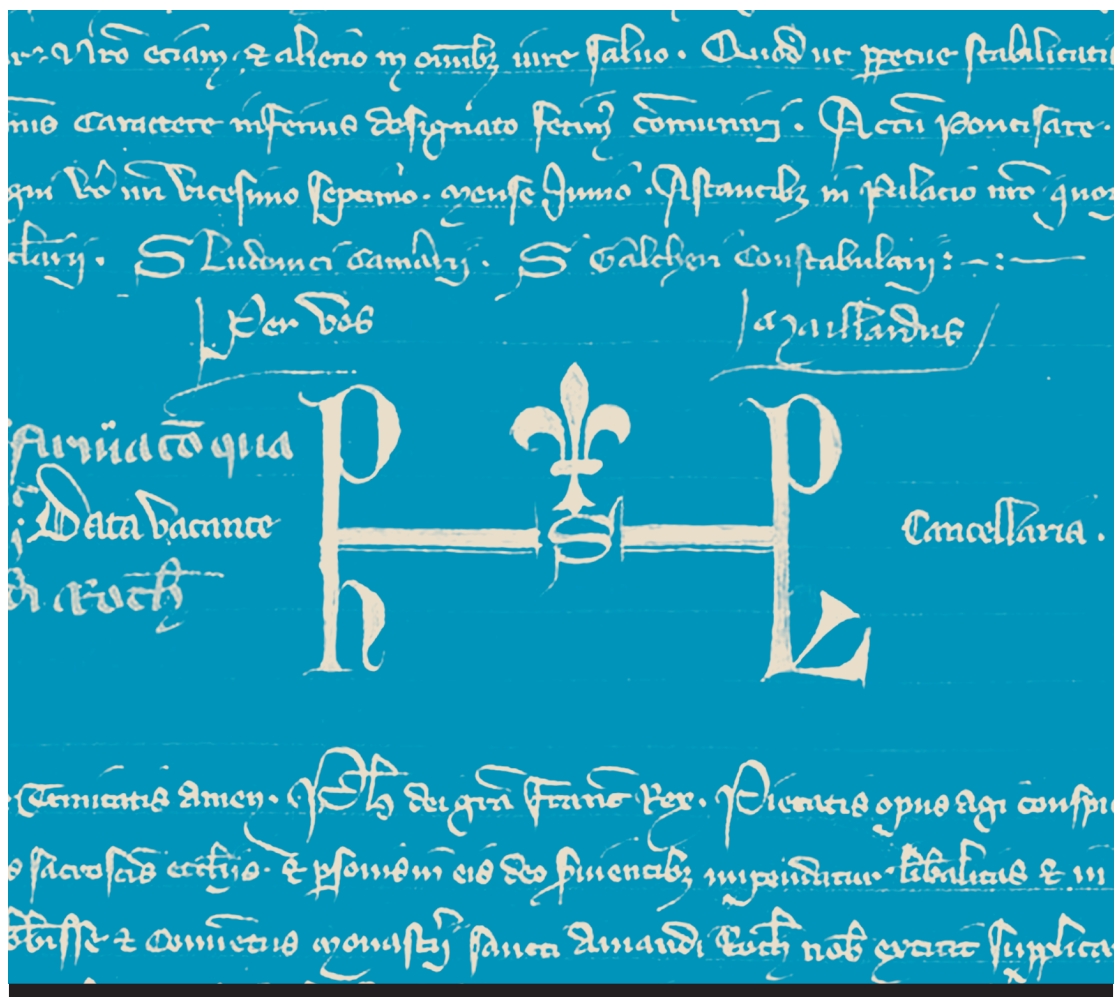 nrō eciam ⁊ alieno in om̄ibꝫ iure saluo. Quod ut ꝑpetue stabilitati
Caractere inferius designato fecimꝰ cōmuniri. Actū Pontisare.
vicesimo septimo. mense Junio. Astantibꝫ in Palacio nrō quoꝝ
S Ludouici Cam̄arij. S Galcheri Constabularij:
Per vos Maillardus
qua
Data vacante Cancellaria.
Roth̄
P S P
h L
Trinitatis Amen. Ph̄ dei grā Franc̄ Rex. Pietatis opus agi conspi
sacroscīs ecclīijs. ⁊ ꝑsonis in eis deo ẜuientibꝫ impenditur lib̄alitas ⁊ in
⁊ Conuentus monastīj sancti Amandi Roth̄ nob̄ extitit supplica